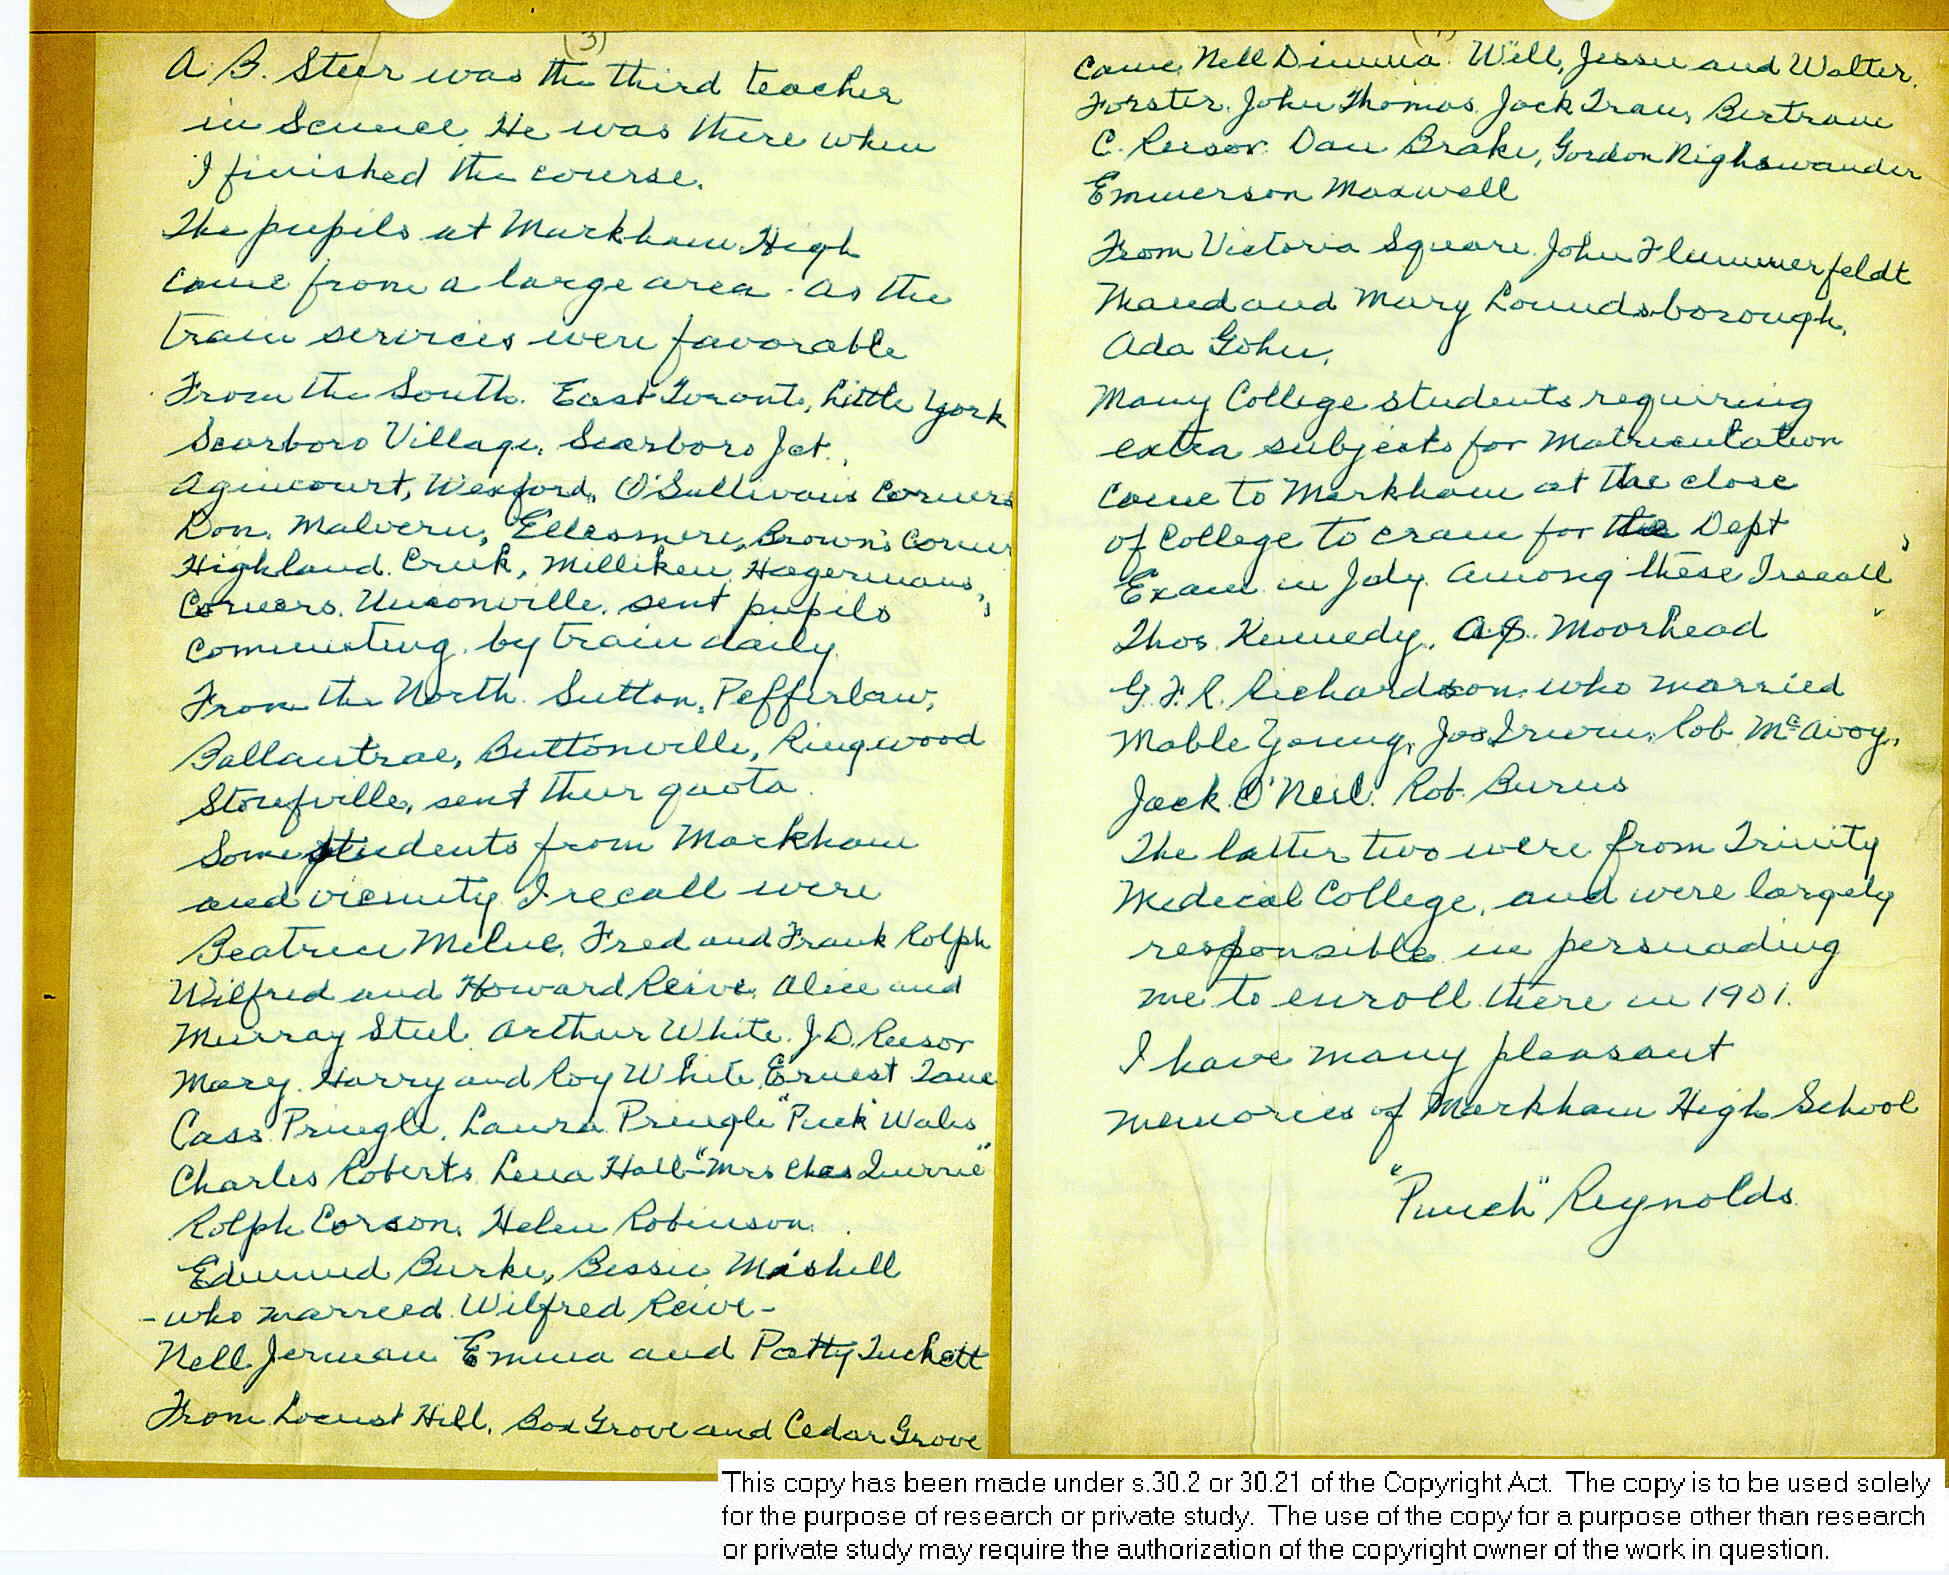 (3)
A. B. Steer was the third teacher
in Science. He was there when
I finished the course.
The pupils at Markham High
came from a large area. As the
train services were favorable
From the South. East Toronto, Little York
Scarboro Village, Scarboro Jct.,
Agincourt, Wexford, O'Sullivans Corners
Don, Malvern, Ellesmere, Brown's Corner
Highland Creek, Milliken, Hagermans,
Corners. Unionville. sent pupils
commuting by train daily.
From the North. Sutton, Pefferlaw,
Ballantrae, Buttonville, Ringwood
Stouffville, sent their quota.
Some students from Markham
and vicinity I recall were
Beatrice Milne, Fred and Frank Rolph
Wilfred and Howard Reive, Alice and
Murray Steel. Arthur White. J. D. Reesor
Mary. Harry and Roy White, Ernest Lane
Cass Pringle, Laura Pringle "Puck" Wales
Charles Roberts. Lena Hall "Mrs Chas Querrie"
Rolph Corson, Helen Robinson.
Edmund Burke, Bessie Mashell
- who married Wilfred Reive -
Nell Jerman Emma and Patty Tuchett
From Locust Hill, Box Grove and Cedar Grove
Came Nell Dimma. Will, Jessie and Walter
Forster, John Thomas, Jack Tran, Bertram
C. Reesor. Dan Brake, Gordon Nighswander
Emmerson Maxwell
From Victoria Square. John Flummerfeldt
Maud and Mary Loundsborough,
Ada Gohn,
Many College students requiring
extra subjects for Matriculation
Came to Markham at the close
of College to cram for the Dept
Exam in July. Among these I recall
Thos. Kennedy, Moorhead
G. F. R. Richardson, who married
Mable Young, Jos Irwin, Rob McAvoy,
Jack O'Neil. Rob. Burns
The latter two were from Trinity
Medical College, and were largely
responsible in persuading
me to enroll there in 1901.
I have many pleasant
memories of Markham High School
"Punch" Reynolds.
This copy has been made under s.30.2 or 30.21 of the Copyright Act. The copy is to be used solely
for the purpose of research or private study. The use of the copy for a purpose other than research
or private study may require the authorization of the copyright owner of the work in question.